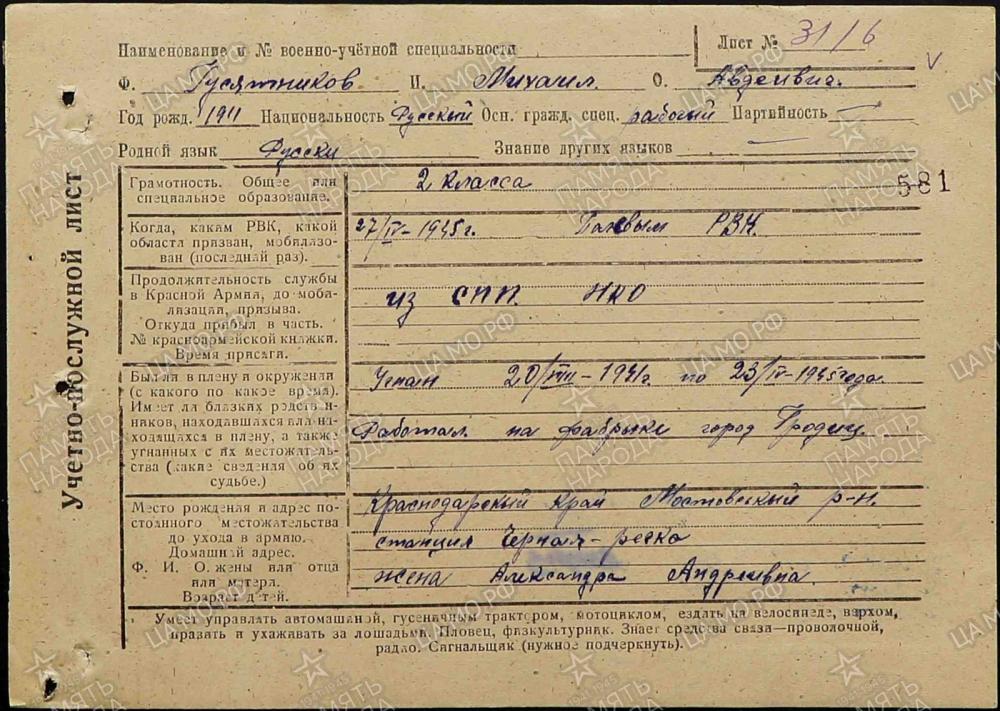 Лист № 31/6
Наименование и № военно-учётной специальности
Ф. Гусятников И. Михаил. О. Авдеевич.
Год рожд. 1911 Национальность Русский Осн. гражд. спец. рабочий Партийность —
Родной язык Русски Знание других языков —
Учетно-послужной лист
581
Грамотность. Общее или
специальное образование.
2 класса
Когда, каким РВК, какой
области призван, мобилизо-
ван (последний раз).
27/IV-1945 г. РВК.
Продолжительность службы
в Красной Армии, до моби-
лизации, призыва.
Откуда прибыл в часть.
№ красноармейской книжки.
Время присяги.
из СПП. НКО
Был ли в плену и окружении
(с какого по какое время).
Имеет ли близких родствен-
ников, находившихся или на-
ходящихся в плену, а также
угнанных с их местожитель-
ства (какие сведения об их
судьбе.)
20/VIII-1941г. по 23/IV-1945 года.
Работал на фабрыки город Гродиц.
Место рождения и адрес по-
стоянного местожительства
до ухода в армию.
Домашний адрес.
Ф. И. О. жены или отца
или матери.
Возраст детей.
Краснодарский край Мостовский р-н.
станция Черная-речка
жена Александра Андреивна.
Умеет управлять автомашиной, гусеничным трактором, мотоциклом, ездить на велосипеде, верхом,
править и ухаживать за лошадьми. Пловец, физкультурник. Знает средства связи—проволочной,
радио. Сигнальщик (нужное подчеркнуть).
ЦАМО.РФ
ПАМЯТЬ
НАРОДА
1941-1945